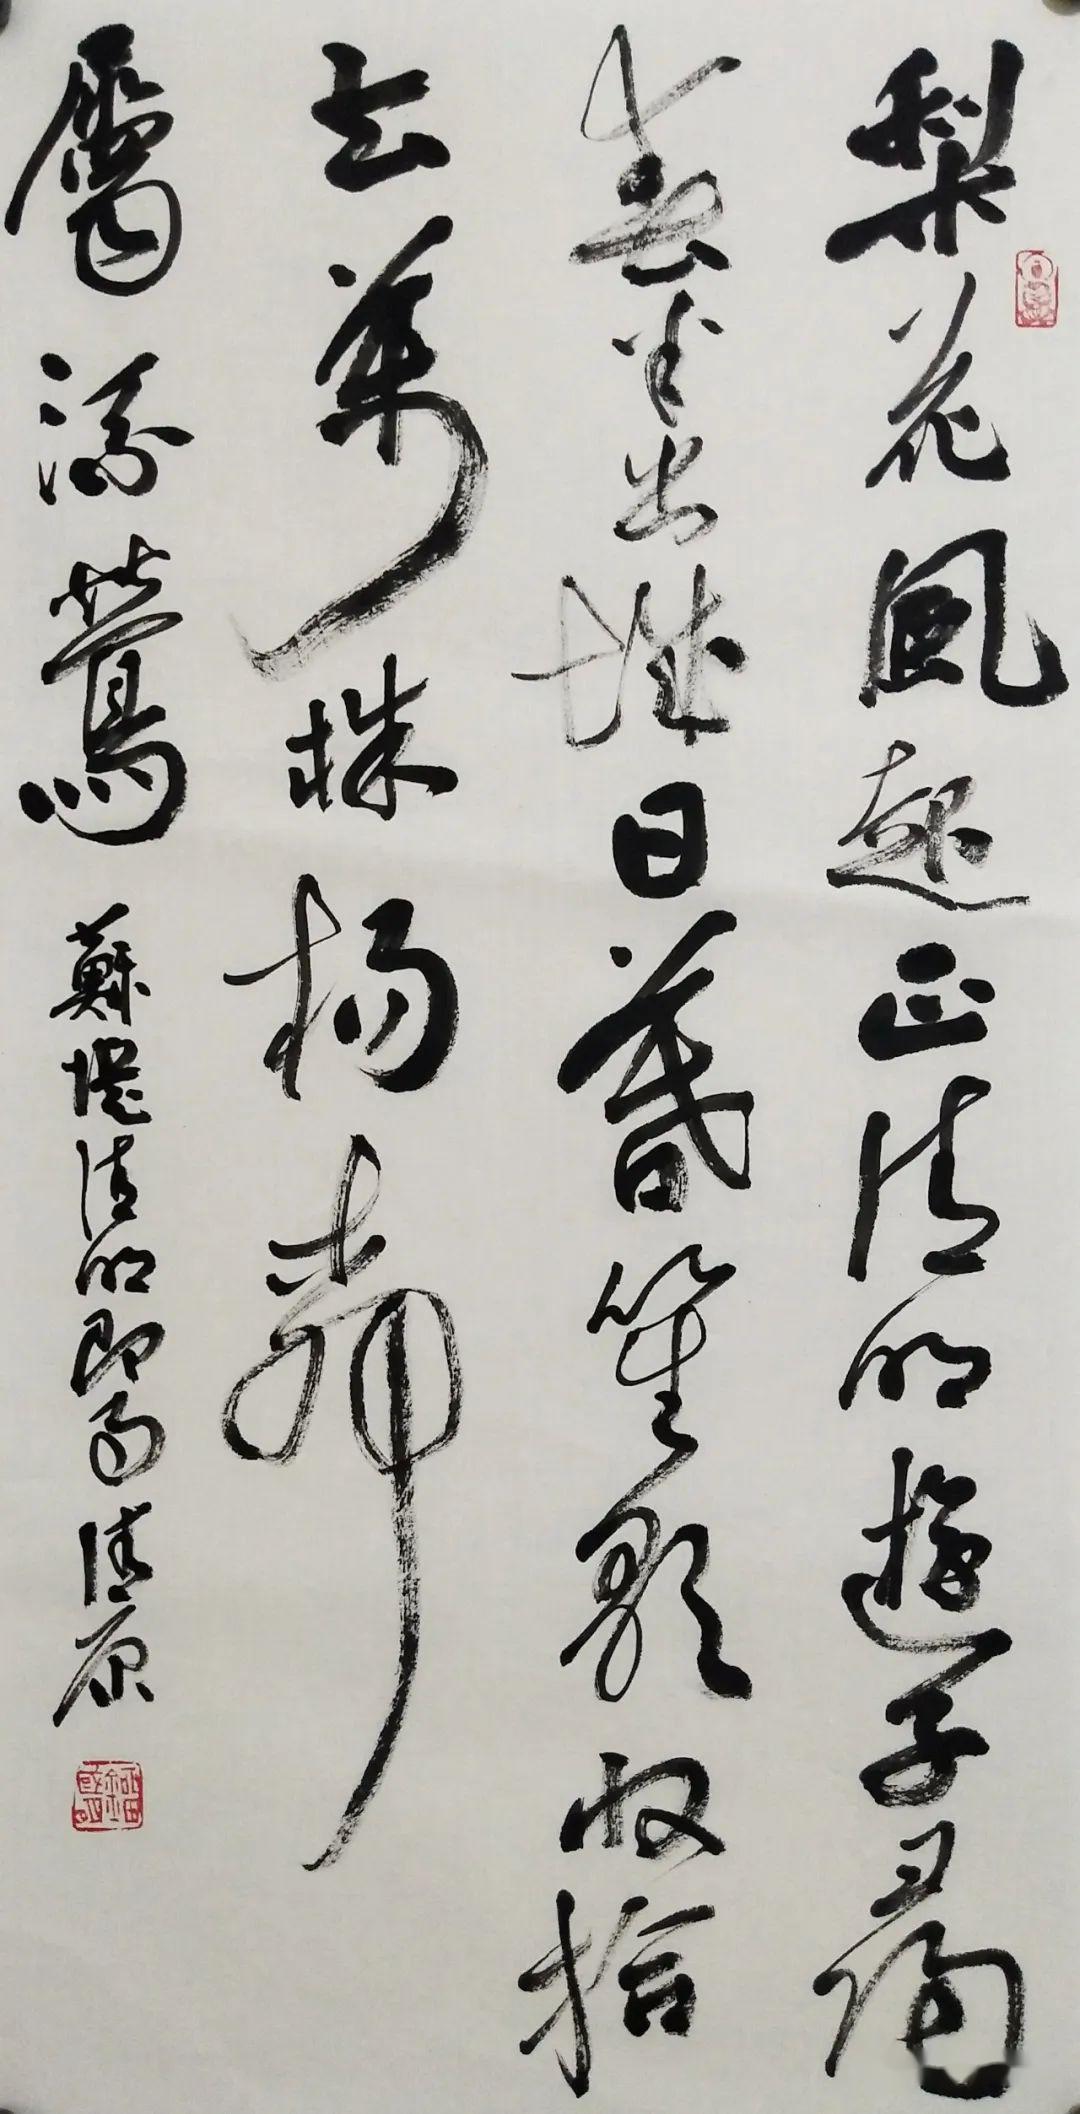 梨花風起正清明遊子尋
春半出城日暮笙歌收拾
去萬株楊柳
屬流鶯 蘇堤清明即事